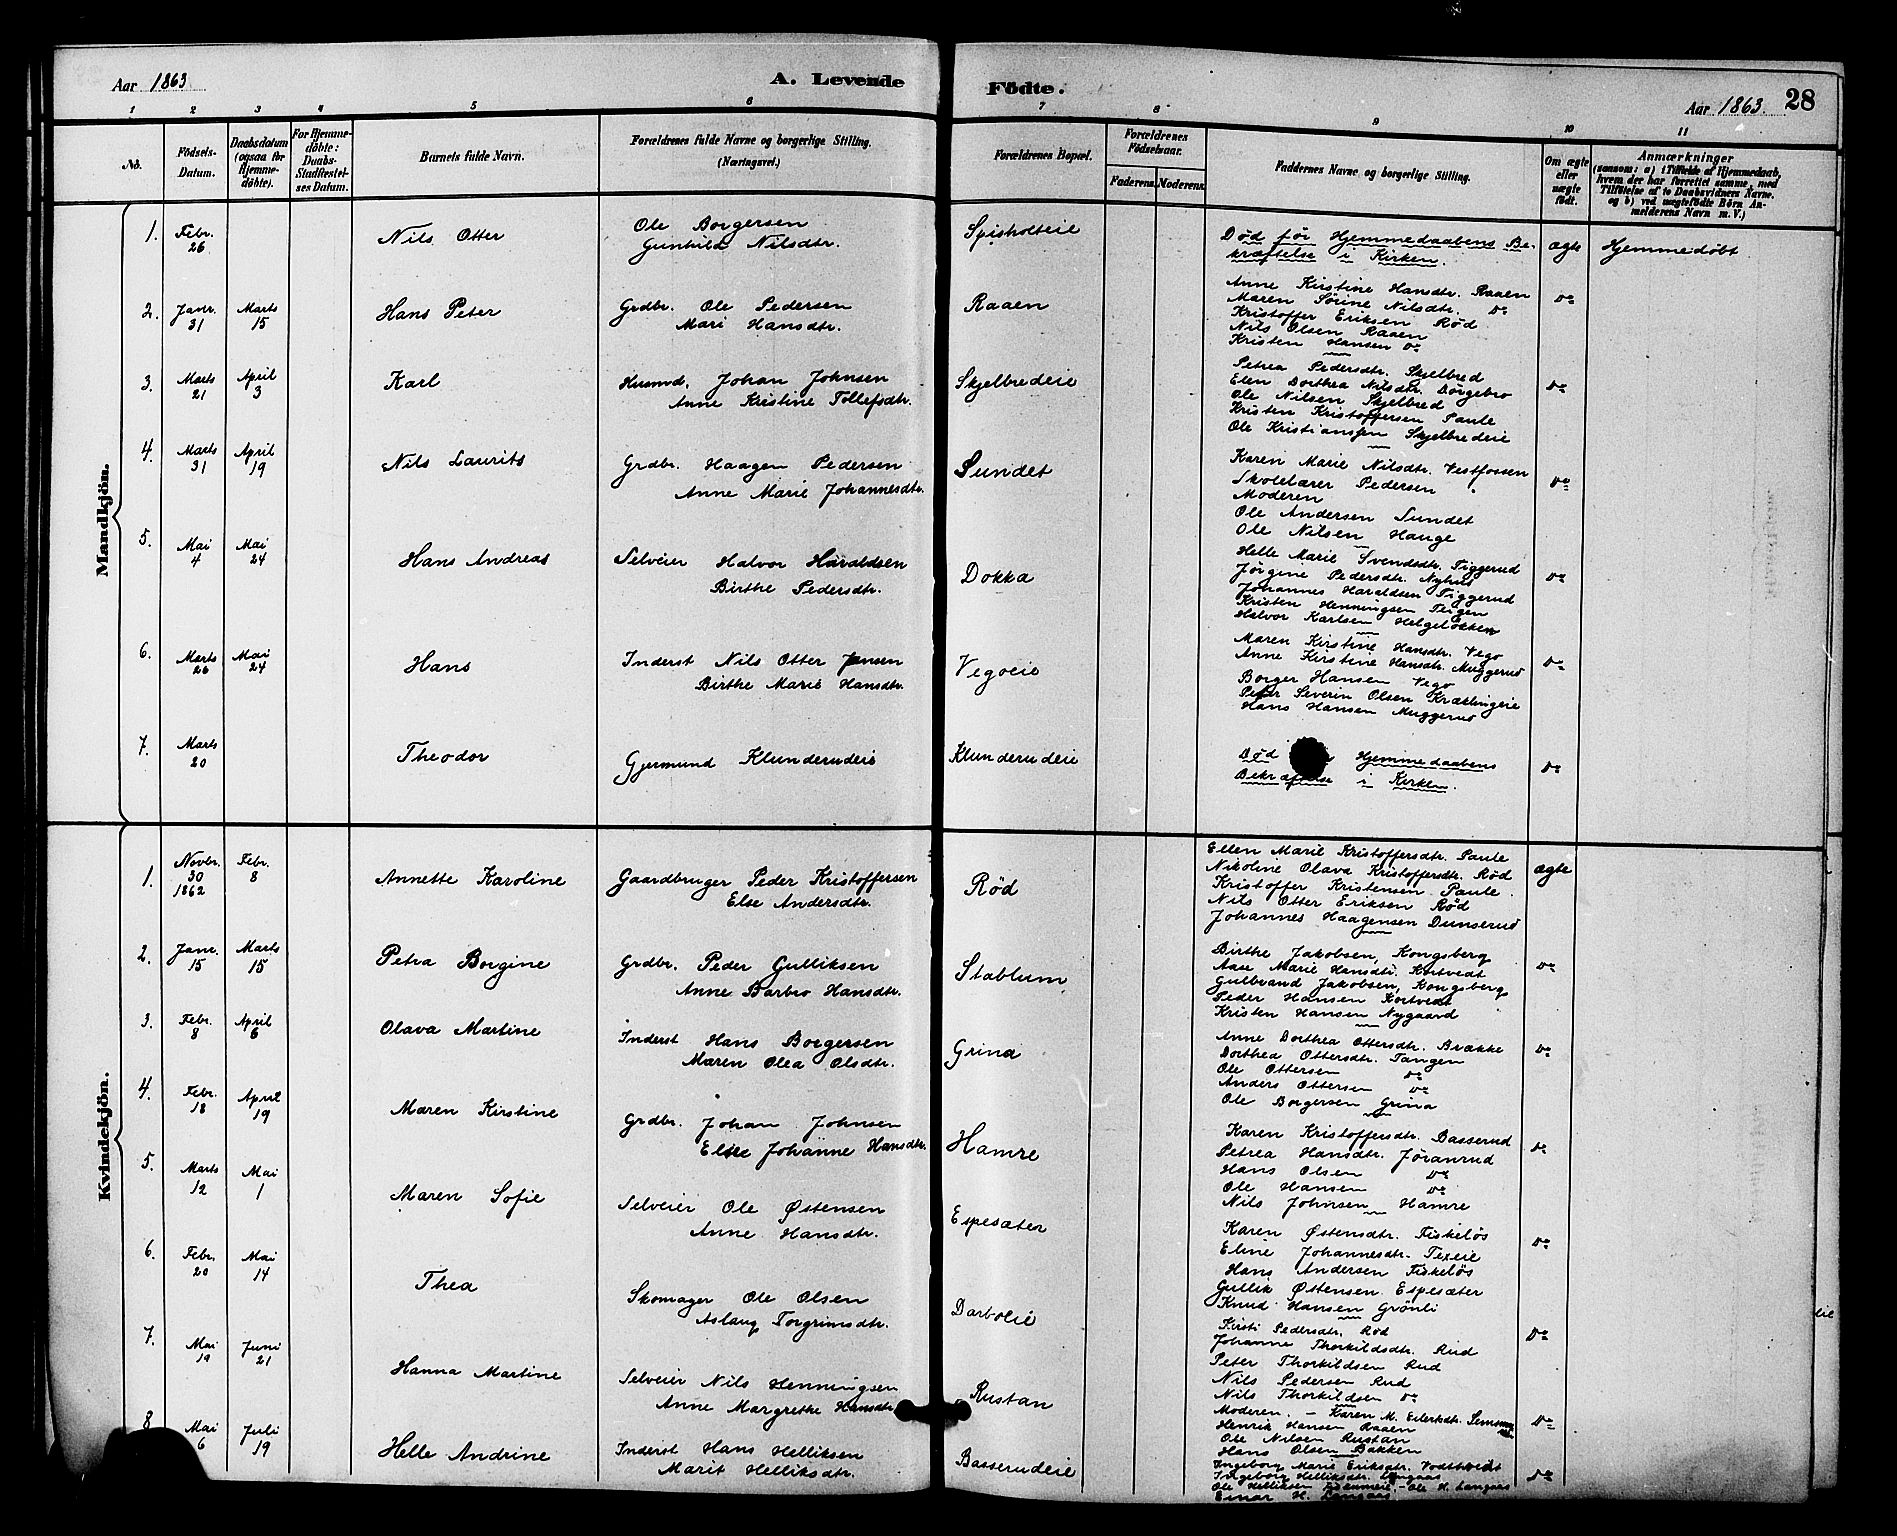 Aar 1863
A. Levende Födte.
Aar 1863. 28
1 2 3 4 5 6 7 8 9 10 11
No.
Födsels-Datum.
Daabsdatum (ogsaa for Hjemmedöbte).
For Hjemmedöbte: Daabs-Stadfæstelses Datum.
Barnets fulde Navn.
Forældrenes fulde Navne og borgerlige Stilling. (Næringsvei.)
Forældrenes Bopæl.
Forældrenes Födselsaar.
Faderens. Moderens.
Faddernes Navne og borgerlige Stilling.
Om ægte eller uægte födt.
Anmærkninger
(saasom: a) i Tilfælde af Hjemmedaab, hvem der har forrettet samme, med Tilföielse af to Daabsvidners Navne, og b) ved uægtefödte Börn Anmelderens Navn m. V.)
Mandkjön.
1. Febr. 26 Nils Otter
Ole Borgersen
Gunhild Nilsdtr.
Spisholteie
Død før Hjemmedaabens Be-
kræftelse i Kirken.
ægte Hjemmedøbt
2. Janr. 31 Marts 15 Hans Peter
Grdbr. Ole Pedersen
Mari Hansdtr.
Raaen
Anne Kirstine Hansdtr. Raaen
Maren Sørine Nilsdtr. do
Kristoffer Eriksen Rød
Nils Olsen Raaen
Kristen Hansen do
do
3. Marts 21 April 3 Karl
Husmd. Johan Johnsen
Anne Kristine Tollefsdtr.
Skjelbredeie
Petrea Pedersdtr. Skjelbred
Elen Dorthea Nilsdtr. Dørgebro
Ole Nilsen Skjelbred
Kristen Kristoffersen Paule
Ole Kristianssen Skjelbredeie
do
4. Marts 31 April 19 Nils Laurits
Grdbr. Haagen Pedersen
Anne Marie Johannesdtr.
Sundet
Karen Marie Nilsdtr. Vestfossen
Skolelærer Pedersen
Moderen
Ole Andersen Sundet
Ole Nilsen Hauge
do
5. Mai 4 Mai 24 Hans Andreas
Selveier Halvor Haraldsen
Birthe Pedersdtr.
Dokka
Helle Marie Svendsdtr. Tiggerud
Jørgine Pedersdtr. Nyhus
Johannes Haraldsen Tiggerud
Kristen Henningsen Teigen
Halvor Karlsen Helgeløkken
do
6. Marts 26 Mai 24 Hans
Inderst Nils Otter Jansen
Birthe Marie Hansdtr.
Vegoeie
Maren Kirstine Hansdtr. Vego
Anne Kirstine Hansdtr. Muggerud
Borger Hansen Vego
Peter Severin Olsen Kræklingeie
Hans Hansen Muggerud
do
7. Marts 20 Theodor
Gjermund Klunderudeie
Klunderudeie
Død Hjemmedaabens
Bekræftelse i Kirken.
do
Kvindekjön.
1. Novbr. 30 1862 Febr. 8 Annette Karoline
Gaardbruger Peder Kristoffersen
Else Andersdtr.
Rød
Ellen Marie Kristoffersdtr. Paule
Nikoline Olava Kristoffersdtr. Rød
Kristoffer Kristensen Paule
Nils Otter Eriksen Rød
Johannes Haagensen Dunserud
ægte
2. Janr. 15 Marts 15 Petra Borgine
Grdbr. Peder Gulliksen
Anne Barbro Hansdtr.
Stablum
Birthe Jakobsen, Kongsberg
Aase Marie Hansdtr. Kortvedt
Gulbrand Jakobsen, Kongsberg
Peder Hansen Kortvedt
Kristen Hansen Nygaard
do
3. Febr. 8 April 6 Olava Martine
Inderst Hans Borgersen
Maren Olea Olsdtr.
Grina
Anne Dorthea Ottersdtr. Brække
Dorthea Ottersdtr. Tangen
Ole Ottersen do
Anders Ottersen do
Ole Borgersen Grina
do
4. Febr. 18 April 19 Maren Kirstine
Grdbr. Johan Johnsen
Else Johanne Hansdtr.
Hamre
Karen Kristoffersdtr. Basserud
Petrea Hansdtr. Jøranrud
Hans Olsen do
Ole Hansen do
Nils Johnsen Hamre
do
5. Marts 12 Mai 1 Maren Sofie
Selveier Ole Østensen
Anne Hansdtr.
Espesæter
Karen Østensdtr. Fiskeløs
Eline Johannesdtr. Texeie
Hans Andersen Fiskeløs
Gullik Østensen Espesæter
Knud Hansen Grønli
do
6. Febr. 20 Mai 14 Thea
Skomager Ole Olsen
Aslaug Torgrimsdtr.
Darboeie
Kirsti Pedersdtr. Rød
Johanne Thorkildsdtr. Rud
Peter Thorkildsen Rud
Nils Pedersen Rud
Nils Thorkildsen do
do
7. Mai 19 Juni 21 Hanna Martine
Selveier Nils Henningsen
Anne Margrethe Hansdtr
Rustan
Moderen. - Karen M. Eilertsdtr.
Henrik Hansen Raaen
Ole Nilsen Rustan
Hans Olsen Bakken
do
8 Mai 6 Juli 19 Helle Andrine
Inderst Hans Helliksen
Marit Helliksdtr.
Basserudeie
Ingeborg Marie Eriksdtr.
Ingeborg Helliksdtr. Langaas
Ole Helliksen - Ole H. Langaas
Einar H. Langaas
do